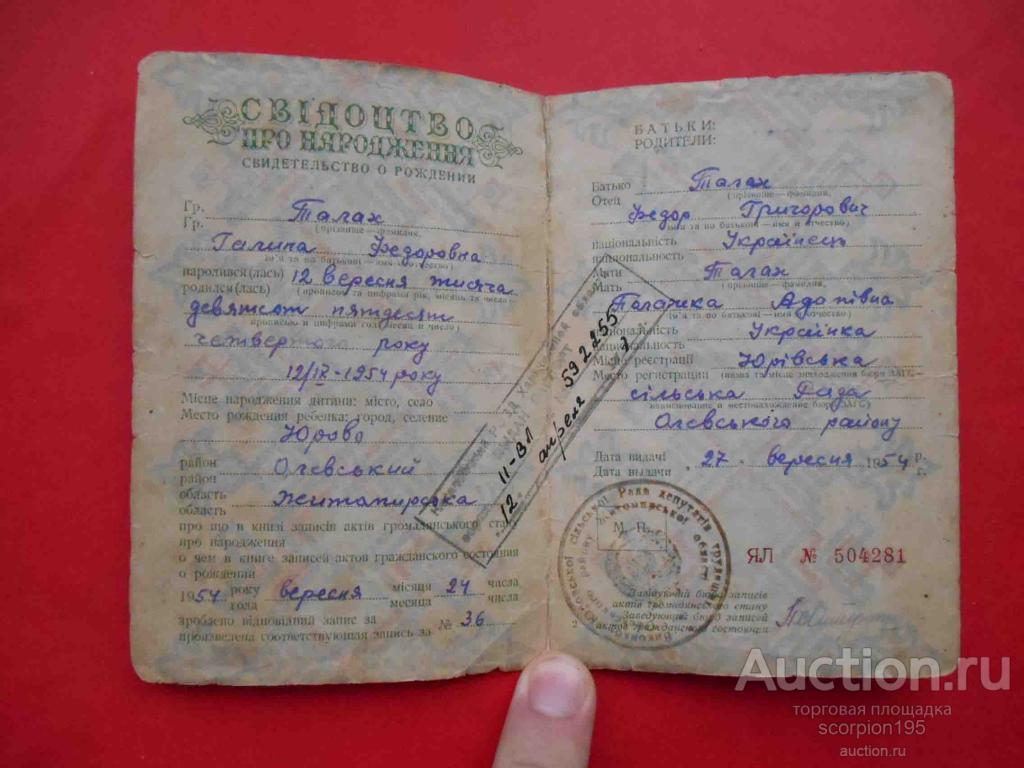 СВІДОЦТВО
ПРО НАРОДЖЕННЯ
СВИДЕТЕЛЬСТВО О РОЖДЕНИИ
Гр. Талах
Гр. (прізвище – фамилия,
Галина Федоровна
ім'я та по батькові – имя и отчество)
народився(лась) 12 вересня тисяча
родился(лась) (прописом та цифрами рік, місяць та число
девятсот пятдесят
прописью и цифрами год, месяц и число)
четвертого року
12/IX-1954 року
Місце народження дитини: місто, село
Место рождения ребенка: город, селение
Юрово
район Олевський
район
область Житомирська
область
про що в книзі записів актів громадянського стану
про народження
о чем в книге записей актов гражданского состояния
о рождении
1954 року вересня місяця 24 числа
года месяца числа
зроблено відповідний запис за № 36
произведена соответствующая запись за
БАТЬКИ:
РОДИТЕЛИ:
Батько Талах
Отец (прізвище – фамилия,
Федор Григорович
ім'я та по батькові – имя и отчество)
національність Українець
национальность
Мати Талах
Мать (прізвище – фамилия,
Палажка
ім'я та по батькові – имя и отчество)
національність Українка
национальность
Місце реєстрації Юрівська
Место регистрации (назва та місце знаходження бюро ЗАГС
сільська Рада
наименование и местонахождение бюро ЗАГС)
Олевського району
Дата видачі 27 вересня 1954 р.
Дата выдачи г.
М. П.
ЯЛ № 504281
Завідуючий бюро записів
актів громадянського стану
Заведующий бюро записей
актов гражданского состояния
2
II-ВЛ 592255
12 апреля
Auction.ru
торговая площадка
scorpion195
auction.ru